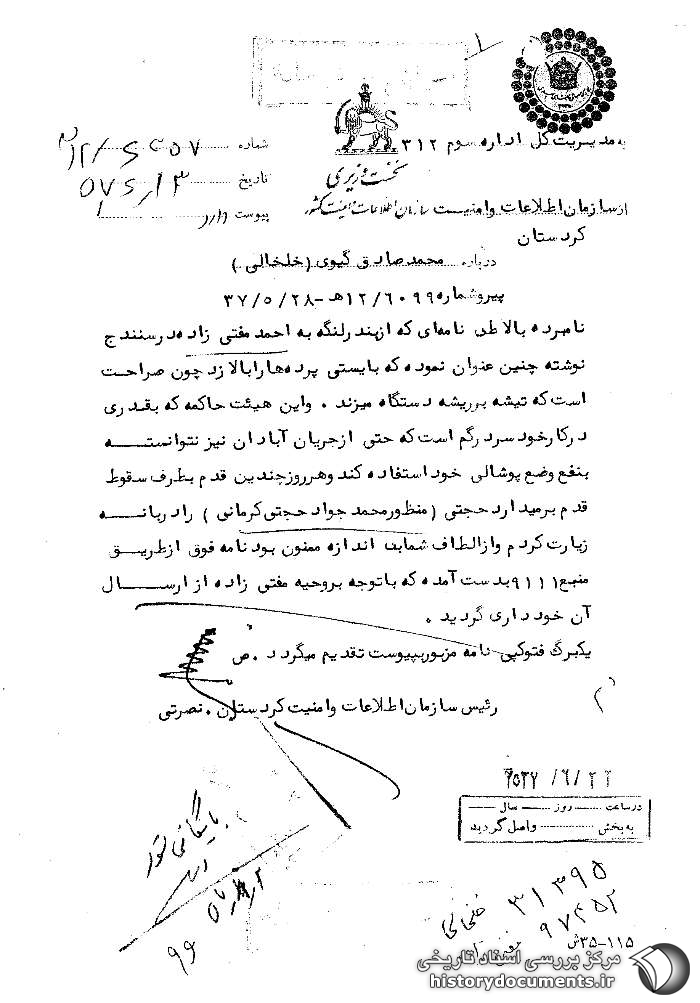 به مدیریت کل اداره سوم ۳۱۲
نخست وزیری
از سازمان اطلاعات و امنیت سازمان اطلاعات و امنیت کشور
کردستان
شماره
تاریخ
پیوست دارد
درباره محمد صادق گیوی (خلخالی)
پیرو شماره ۱۲/۶۰۹۹ه‍ـ-۳۷/۵/۲۸
نامبرده بالا طی نامه‌ای که از بندر لنگه به احمد مفتی زاده در سنندج
نوشته چنین عنوان نموده که بایستی پرده‌ها را بالا زد چون صراحت
است که تیشه بر ریشه دستگاه میزند . واین هیئت حاکمه که بقدری
در کار خود سر درگم است که حتی از جریان آبادان نیز نتوانسته
بنفع وضع پوشالی خود استفاده کند وهر روز چندین قدم بطرف سقوط
قدم بر میدارد حجتی (منظور محمد جواد حجتی کرمانی) را در بانه
زیارت کردم واز الطاف شما بی اندازه ممنون بود نامه فوق از طریق
منبع ۹۱۱۱ بدست آمده که با توجه بروحیه مفتی زاده از ارسال
آن خودداری گردید .
یکبرگ فتوکپی نامه مزبور بپیوست تقدیم میگردد . ص
رئیس سازمان اطلاعات وامنیت کردستان . نصرتی
۲۵۳۷/۶/۲۲
در ساعت روز سال
به بخش واصل گردید
بایگانی شود
۳۱۳۹۵
خلخالی
۹۷۴۵۲
۳۵-۱۱۵ش
مرکز بررسی اسناد تاریخی
historydocuments.ir